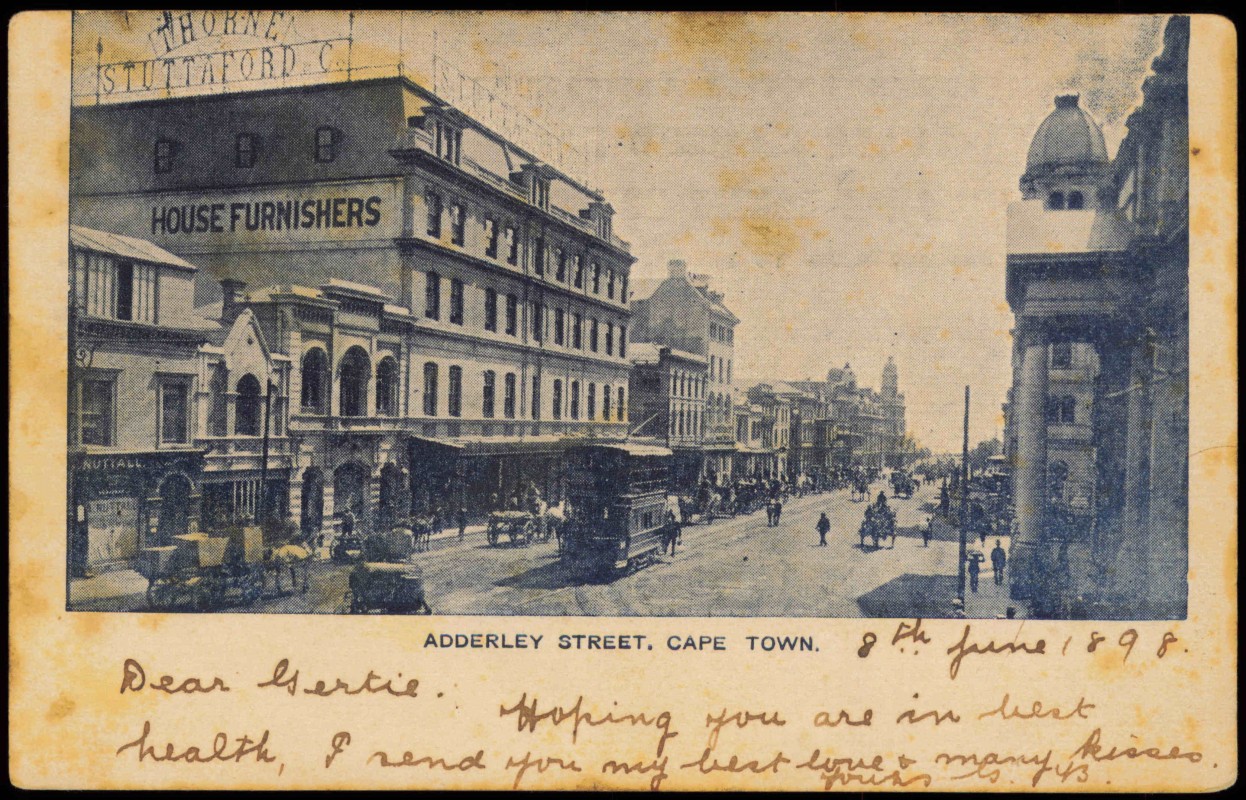 THORNE
STUTTAFORD C.
HOUSE FURNISHERS
NUTTALL
ADDERLEY STREET. CAPE TOWN.
8th June 1898.
Dear Gertie.
Hoping you are in best
health, I send you my best love & many kisses.
yours